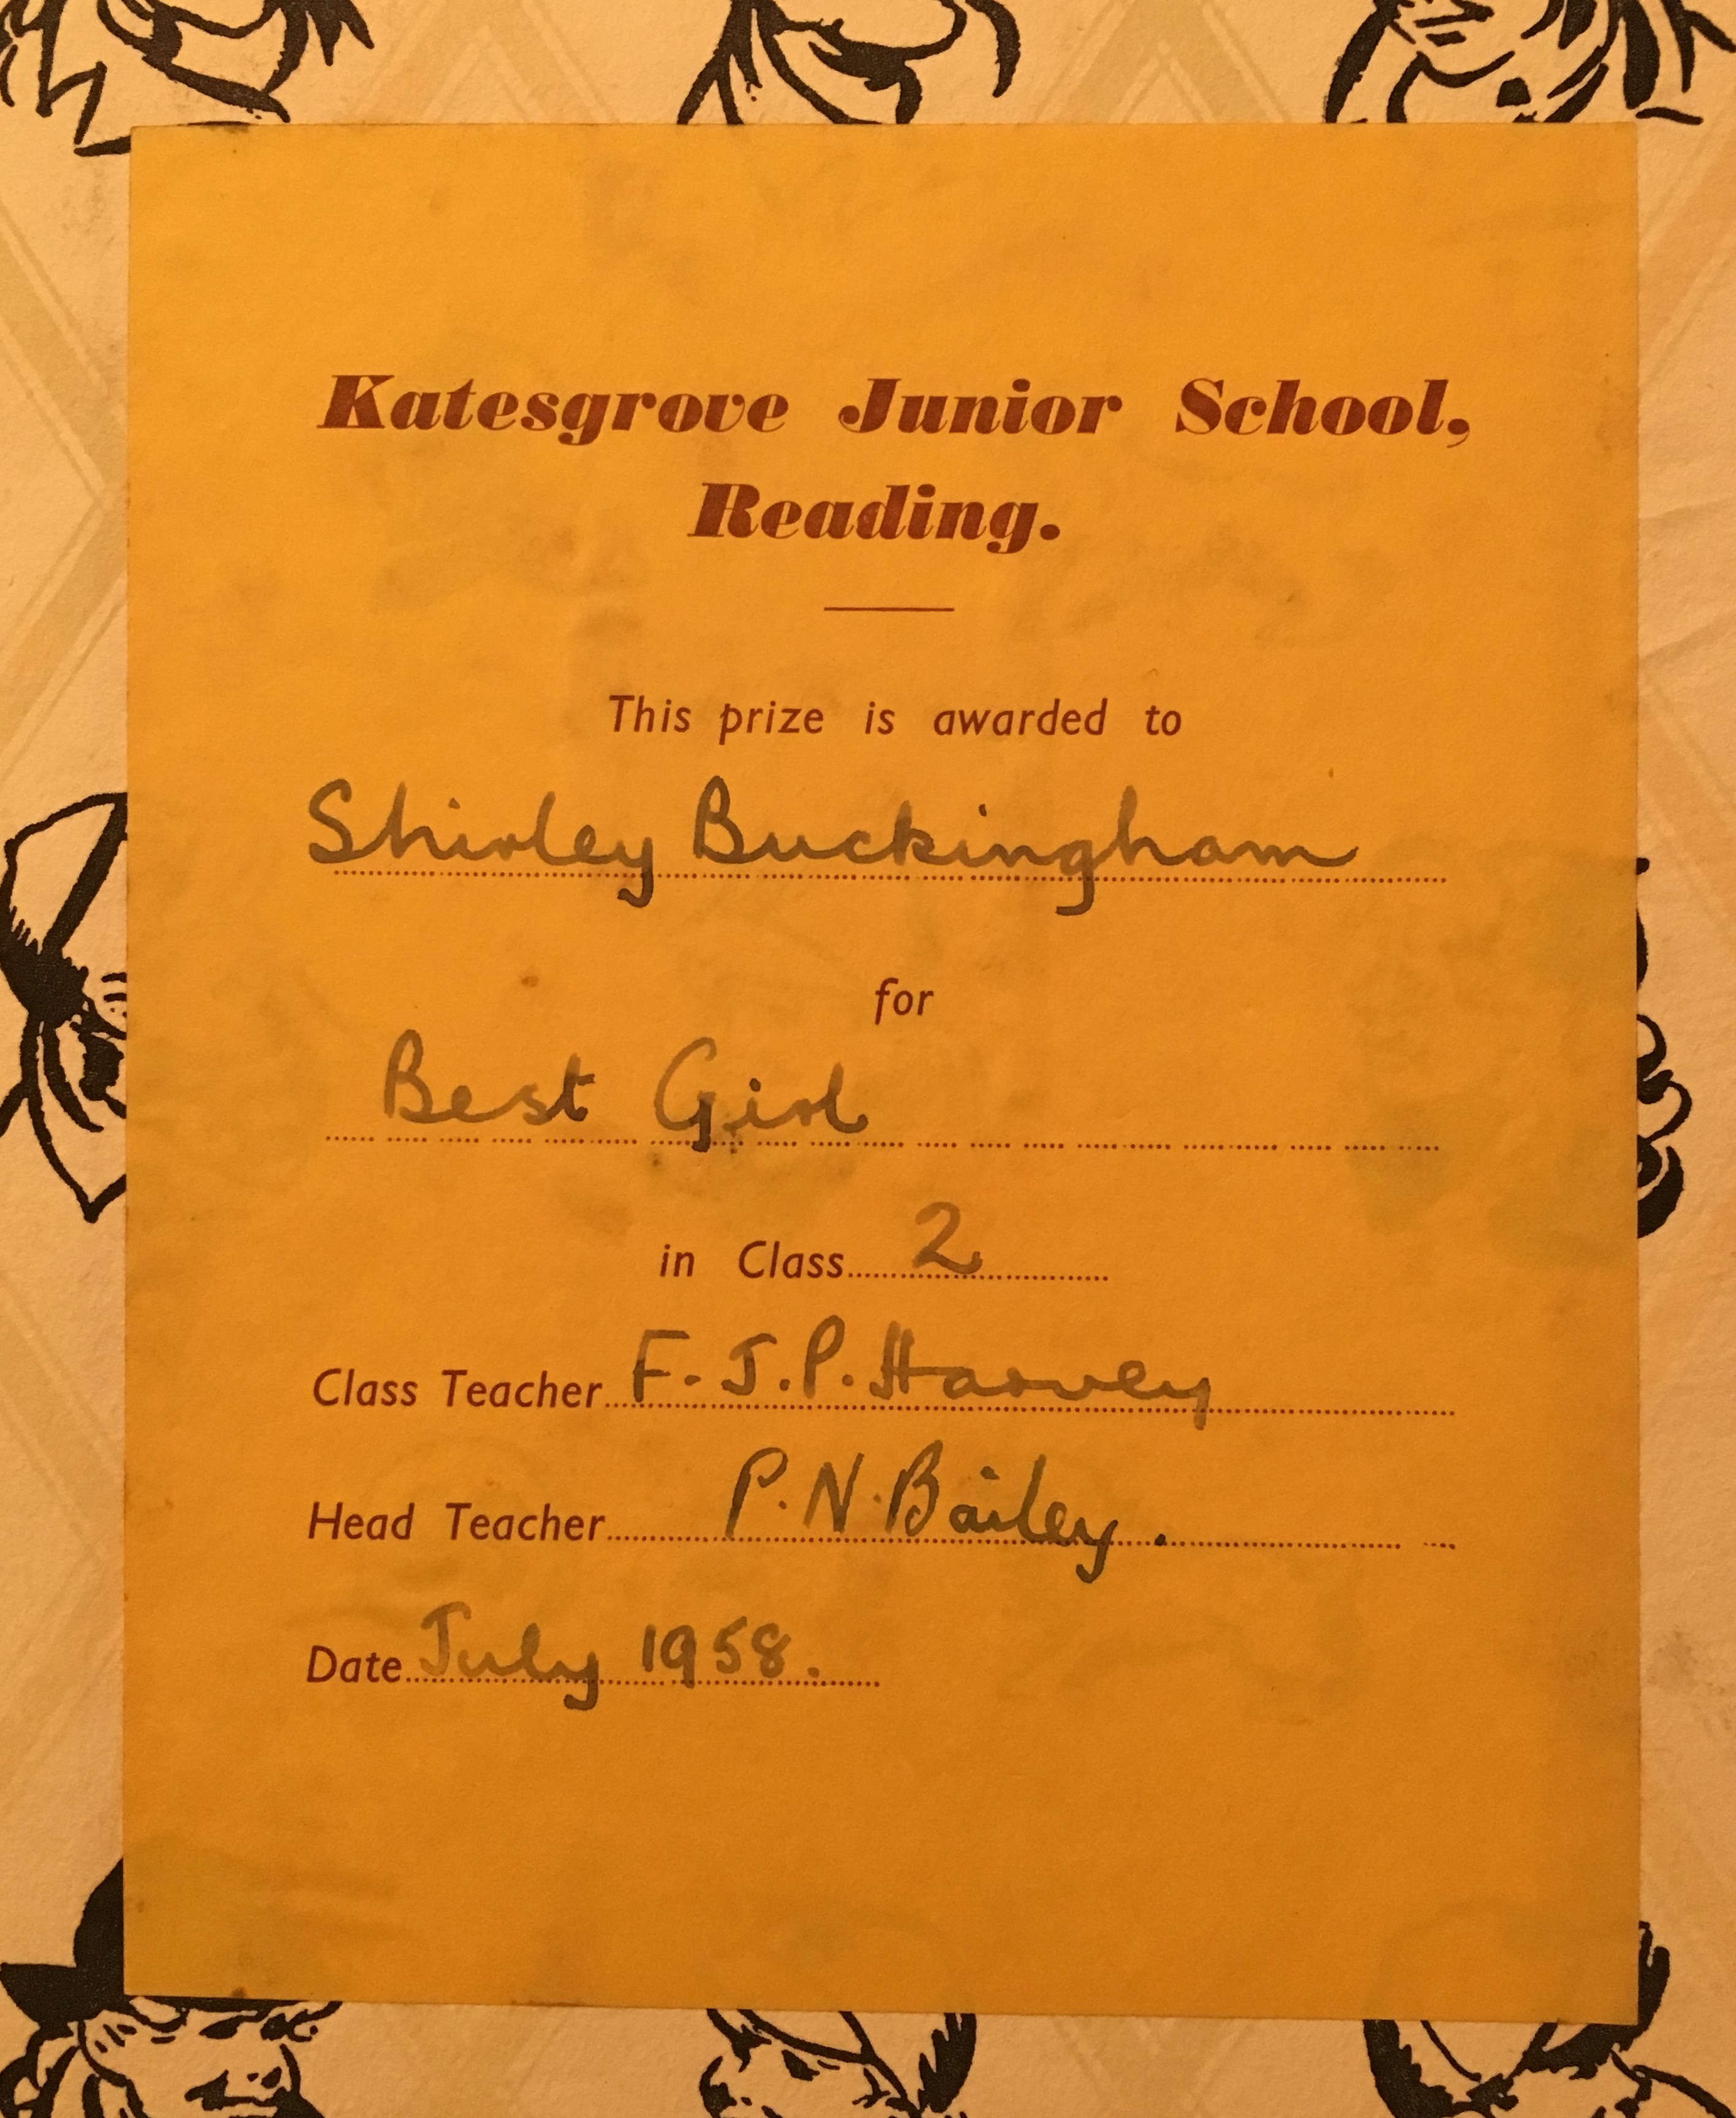 Katesgrove Junior School,
Reading.
This prize is awarded to
Shirley Buckingham
for
Best Girl
in Class 2
Class Teacher F. J. P. Harvey
Head Teacher P. N. Bailey.
Date July 1958.